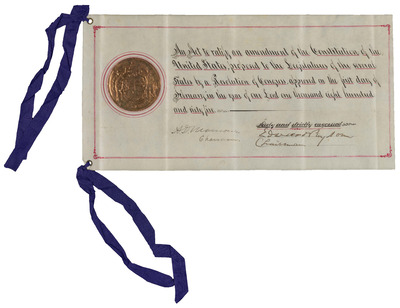 An Act to ratify an amendment of the Constitution of the
United States, proposed to the Legislatures of the several
States by a Resolution of Congress approved on the first day of
February in the year of Our Lord one thousand eight hundred
and sixty five.
strictly
Chairman